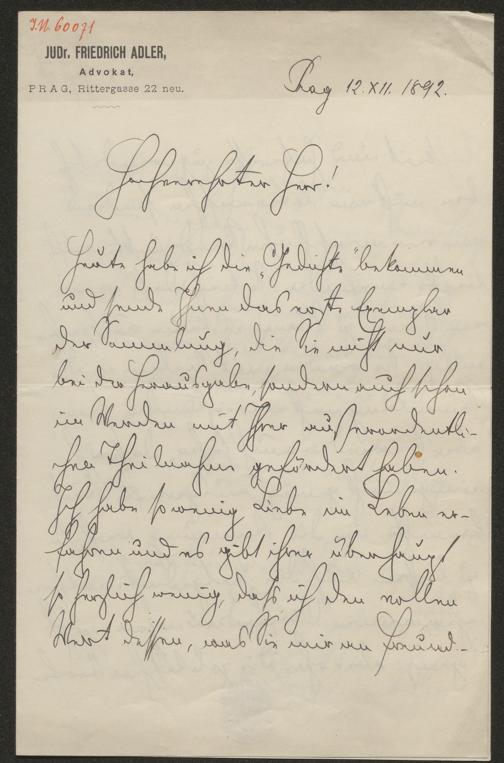 I.N. 60071
JUDr. FRIEDRICH ADLER,
Advokat,
PRAG, Rittergasse 22 neu.
Prag 12.XII. 1892.
Hochverehrter Herr!
Heute habe ich die „Gedichte“ bekommen
und sende Ihnen das erste Exemplar
der Sammlung, die Sie nicht nur
bei der Herausgabe, sondern auch schon
im Werden mit Ihrer außerordentli-
chen Theilnahme gefördert haben.
Ich habe so wenig Liebe im Leben er-
fahren und es gibt ihrer überhaupt
so herzlich wenig, daß ich den vollen
Wert dessen, was Sie mir an Freund-